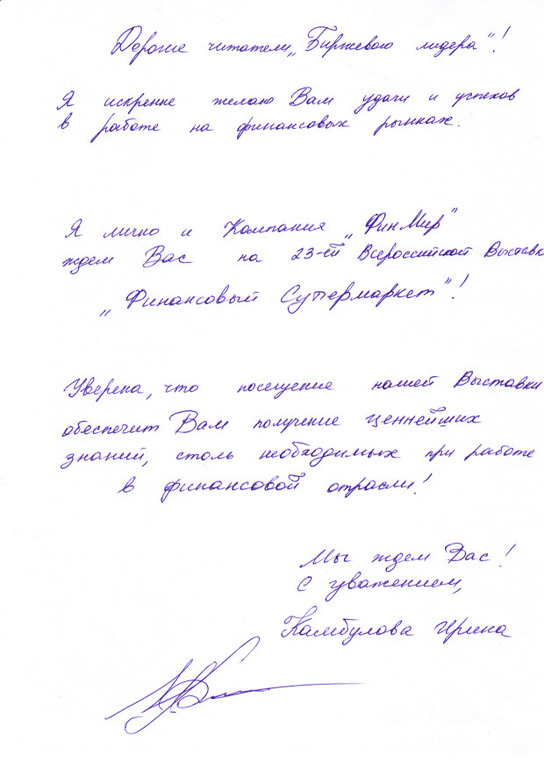 Дорогие читатели „Биржевого лидера"!
Я искренне желаю Вам удачи и успехов
в работе на финансовых рынках.
Я лично и Компания „ФинМир"
ждем Вас на 23-ей Всероссийской Выставк
„Финансовый Супермаркет"!
Уверена, что посещение нашей Выставки
обеспечит Вам получение ценнейших
знаний, столь необходимых при работе
в финансовой отрасли!
Мы ждем Вас!
С уважением,
Камбулова Ирина